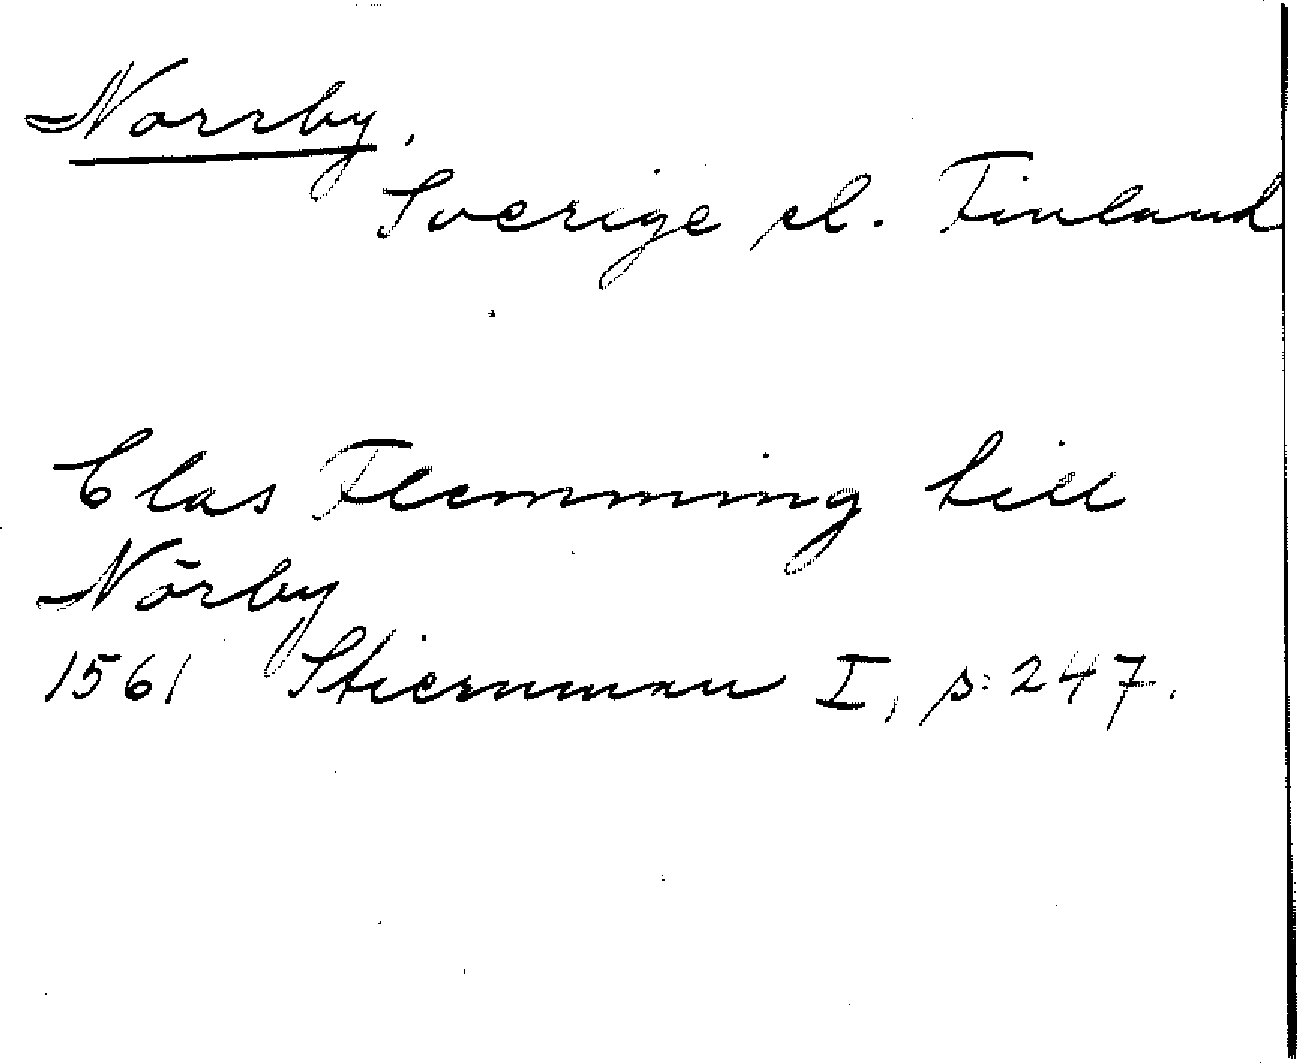 Norrby,
Sverige el. Finland
Clas Flemming till
Nörby
1561 Stiernman I, s: 247.